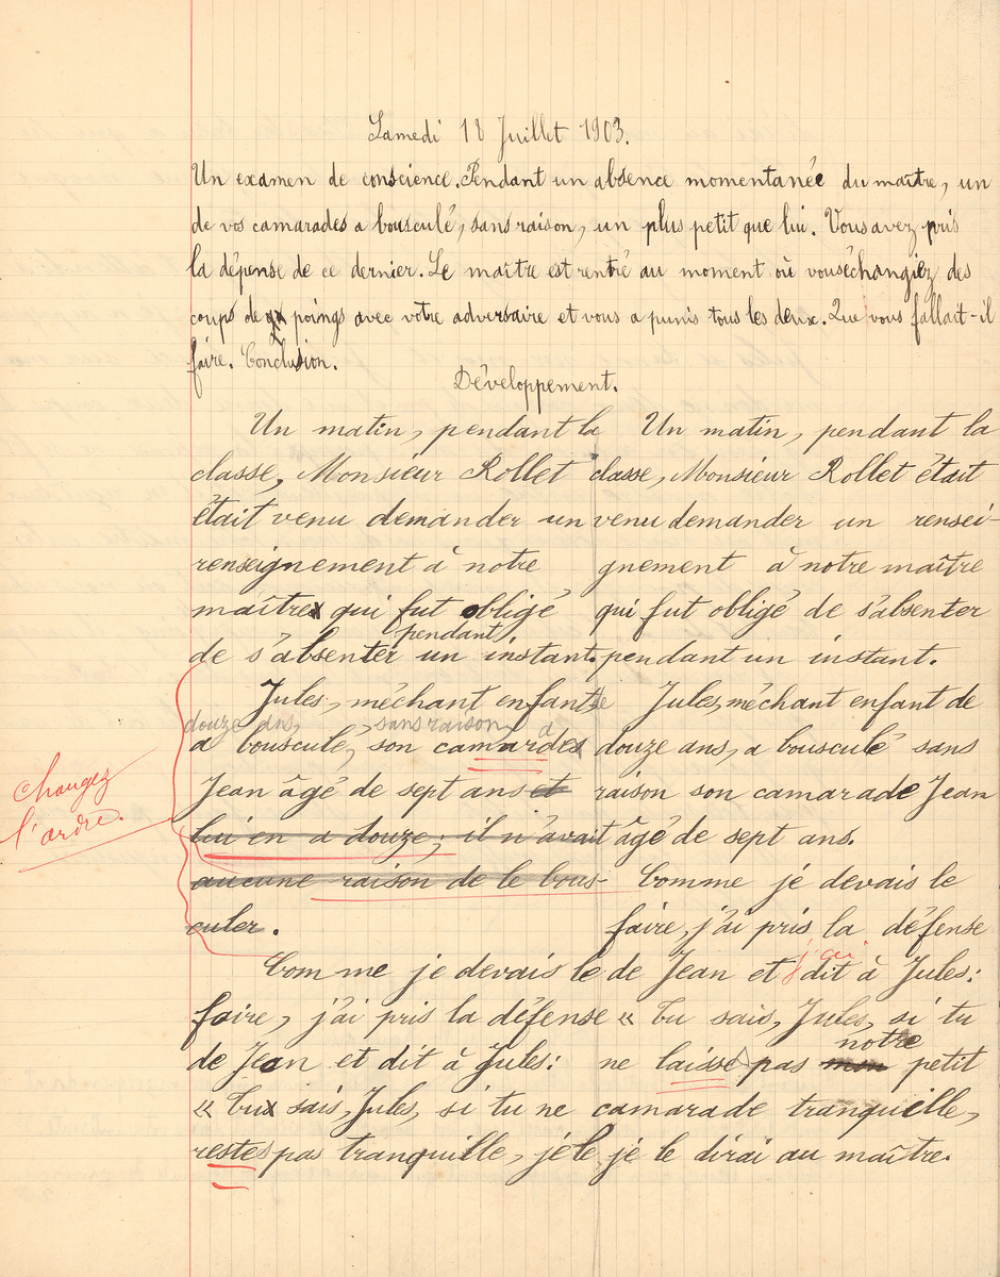 Samedi 18 Juillet 1903.
Un examen de conscience. Pendant un absence momentanée du maître, un
de vos camarades a bousculé, sans raison, un plus petit que lui. Vous avez pris
la dépense de ce dernier. Le maître est rentré au moment où vous échangiez des
coups de poings avec votre adversaire et vous a punis tous les deux. Que vous fallait-il
faire. Conclusion.
Développement.
Un matin, pendant la
classe, Monsieur Rollet
était venu demander un
renseignement à notre
maître qui fut obligé
pendant
de s'absenter un instant.
Jules, méchant enfant de
douze ans, sans raison, d
a bousculé, son camardes
Jean âgé de sept ans et
lui en a douze; il n'avait
aucune raison de le bous-
culer.
changez
l'ordre.
Comme je devais le
faire, j'ai pris la défense
de Jean et dit à Jules:
« Tu sais, Jules, si tu ne
restes pas tranquille, je le
Un matin, pendant la
classe, Monsieur Rollet était
venu demander un rensei-
gnement à notre maître
qui fut obligé de s'absenter
pendant un instant.
Jules, méchant enfant de
douze ans, a bousculé sans
raison son camarade Jean
âgé de sept ans.
Comme je devais le
faire, j'ai pris la défense
j'ai
de Jean et dit à Jules:
« Tu sais, Jules, si tu
notre
ne laisse pas mon petit
camarade tranquille,
je le dirai au maître.